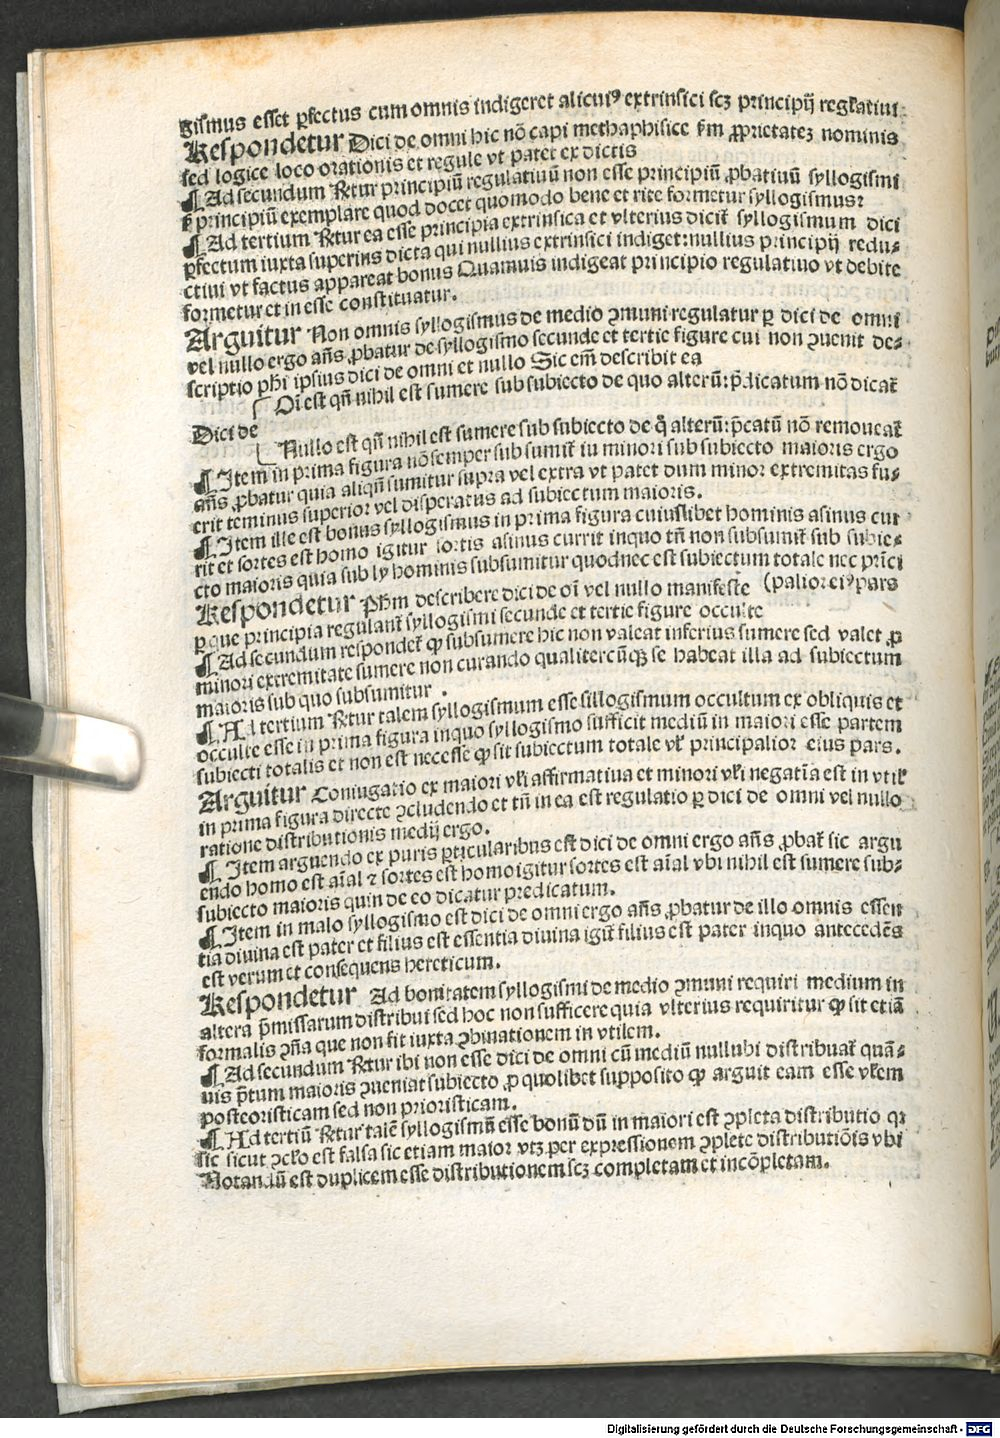 gismus esset ꝑfectus cum omnis indigeret alicuiꝰ extrinsici scꝫ principij regl̃atiui
Respondetur Dici de omni hic nõ capi methaphisice ẜm ꝓprietateꝫ nominis
sed logice loco orationis et regule vt patet ex dictis
¶ Ad secundum Rẽtur principiũ regulatiuũ non esse principiũ ꝓbatiuũ syllogismi
principiũ exemplare quod docet quomodo bene et rite formetur syllogismus:
¶ Ad tertium Rẽtur ea esse principia extrinsica et vlterius dicit̃ syllogismum dici
ꝑfectum iuxta superius dicta qui nullius extrinsici indiget: nullius principij redu⸗
ctiui vt factus appareat bonus Quamuis indigeat principio regulatiuo vt debite
formetur et in esse constituatur.
Arguitur Non omnis syllogismus de medio ꝯmuni regulatur ꝑ dici de omni
vel nullo ergo añs ꝓbatur de syllogismo secunde et tertie figure cui non ꝯuenit de⸗
scriptio pħi ipsius dici de omni et nullo Sic em̃ describit ea
Oĩ est qñ nihil est sumere sub subiecto de quo alterũ: p̃dicatum nõ dicat̃
Dici de
Nullo est qñ nihil est sumere sub subiecto de q̃ alterũ: p̃catũ nõ remoueat̃
¶ Item in prima figura nõ semper sub sumit̃ in minori sub subiecto maioris ergo
añs ꝓbatur quia aliqñ sumitur supra vel extra vt patet dum minor extremitas fu⸗
erit teminus superior vel disperatus ad subiectum maioris.
¶ Item ille est bonus syllogismus in prima figura cuiuslibet hominis asinus cur
rit et sortes est homo igitur sortis asinus currit in quo tñ non subsumit̃ sub subie⸗
cto maioris quia sub ly hominis subsumitur quod nec est subiectum totale nec prĩci
Respondetur Pħm describere dici de oĩ vel nullo manifeste (palior eiꝰ pars
ꝑ que principia regulant̃ syllogismi secunde et tertie figure occulte
¶ Ad secundum respondet̃ ꝙ subsumere hic non valeat inferius sumere sed valet ꝓ
minori extremitate sumere non curando qualitercũqꝫ se habeat illa ad subiectum
maioris sub quo subsumitur .
¶ Ad tertium Rẽtur talem syllogismum esse sillogismum occultum ex obliquis et
occulte esse in prima figura in quo syllogismo sufficit mediũ in maiori esse partem
subiecti totalis et non est necesse ꝙ sit subiectum totale vel̃ principalior eius pars.
Arguitur Coniugatio ex maiori vl̃i affirmatiua et minori vl̃i negatĩa est in vtil̃
in prima figura directe ꝯcludendo et tñ in ea est regulatio ꝑ dici de omni vel nullo
ratione distributionis medij ergo.
¶ Item arguendo ex puris ꝑticularibus est̃ dici de omni ergo añs ꝓbat̃ sic argu
endo homo est aĩal ⁊ sortes est homo igitur sortes est aĩal vbi nihil est sumere sub⸗
subiecto maioris quin de eo dicatur predicatum.
¶ Item in malo syllogismo est dici de omni ergo añs ꝓbatur de illo omnis essen
tia diuina est pater et filius est essentia diuina igit̃ filius est pater in quo antecedẽs
est verum et consequens hereticum.
Respondetur Ad bonitatem syllogismi de medio ꝯmuni requiri medium in
altera p̃missarum distribui sed hoc non sufficere quia vlterius requiritur ꝙ sit etiã
formalis ꝯña que non fit iuxta ꝯbinationem in vtilem.
¶ Ad secundum Rẽtur ibi non esse dici de omni cũ mediũ nullubi distribuat̃ quã⸗
uis p̃tum maioris ꝯueniat subiecto ꝓ quolibet supposito ꝙ arguit eam esse vl̃em
posteoristicam sed non prioristicam.
¶ Ad tertiũ Rẽtur talẽ syllogismũ esse bonũ dũ in maiori est ꝯpleta distributio qꝛ
sic sicut ꝯcl̃o est falsa sic etiam maior vtꝫ per expressionem ꝯplete distributiõis vbi
Notandũ est duplicem esse distributionem scꝫ completam et incõpletam.
Digitalisierung gefördert durch die Deutsche Forschungsgemeinschaft - DFG